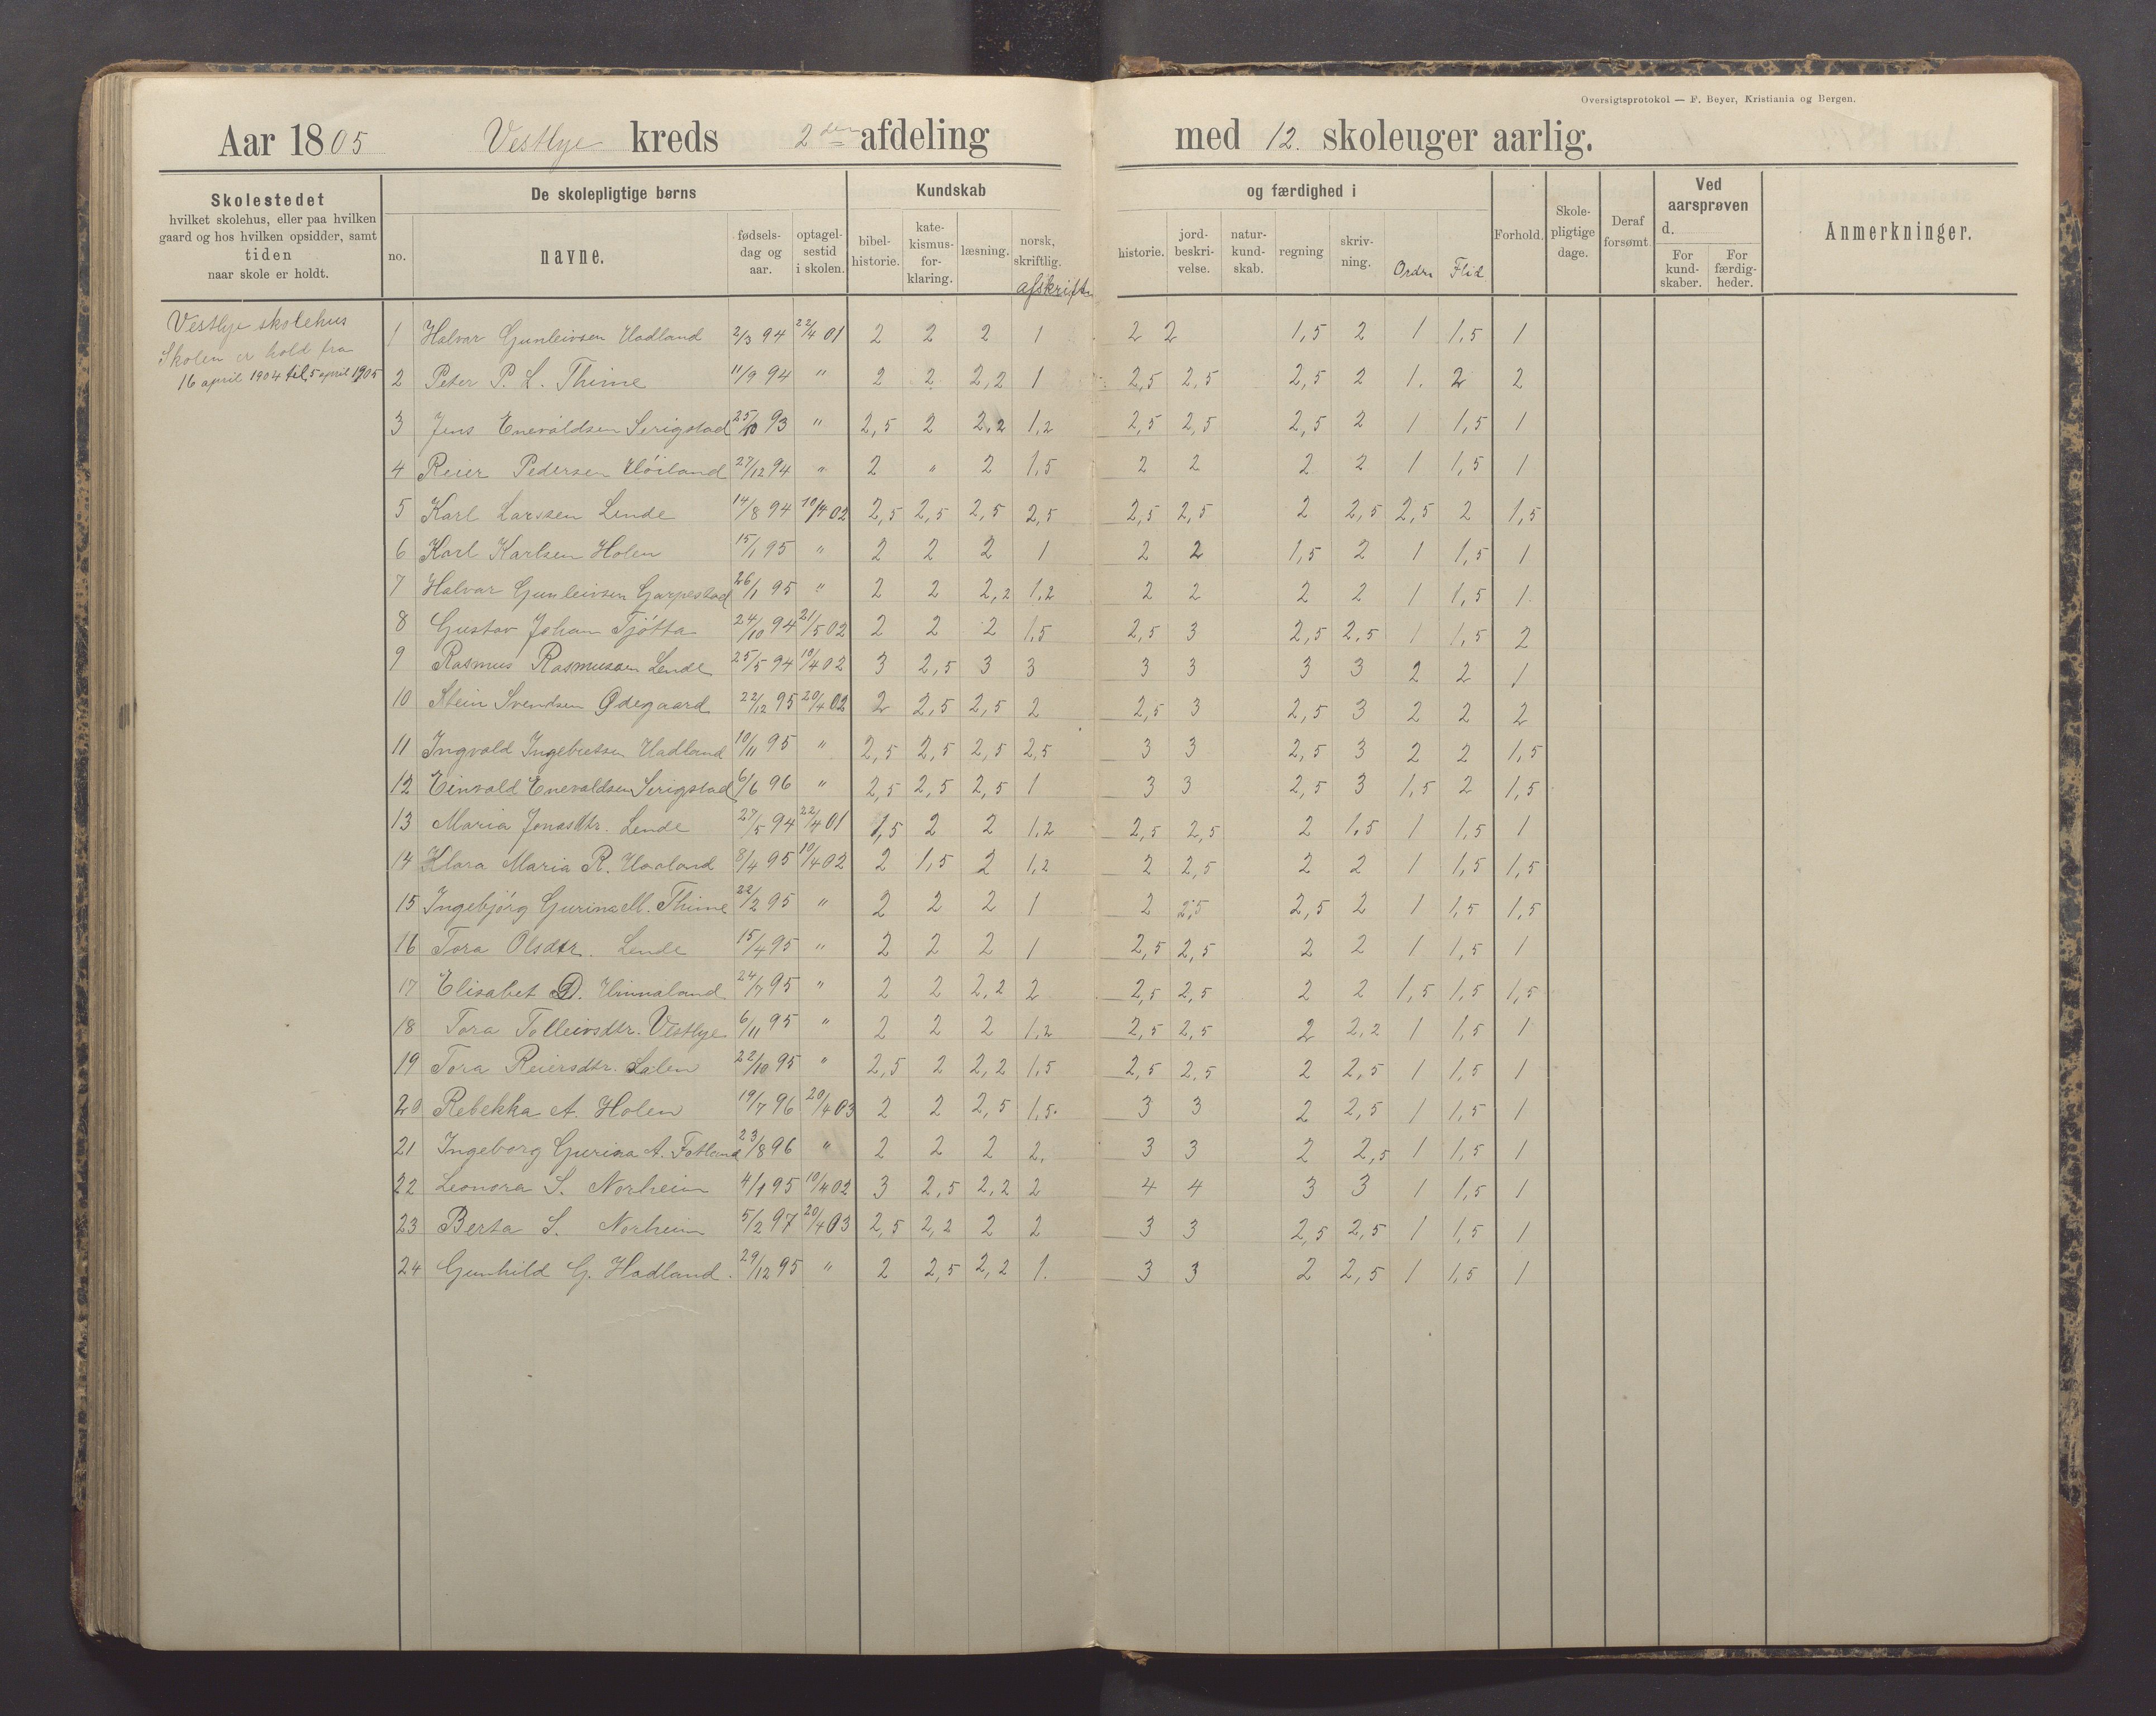 Oversigtsprotokol — F. Beyer, Kristiania og Bergen.
Aar 1805 Vestlye kreds 2den afdeling med 12. skoleuger aarlig.
Skolestedet
hvilket skolehus, eller paa hvilken
gaard og hos hvilken opsidder, samt
tiden
naar skole er holdt.
De skolepligtige børns
no.
navne.
fødsels-
dag og
aar.
optagel-
sestid
i skolen.
Kundskab
bibel-
historie.
kate-
kismus-
for-
klaring.
læsning.
norsk,
skriftlig.
afskrift
og færdighed i
historie.
jord-
beskri-
velse.
natur-
kund-
skab.
regning
skriv-
ning.
Orden
Flid
Forhold.
Skole-
pligtige
dage.
Deraf
forsømt.
Ved
aarsprøven
d.
For
kund-
skaber.
For
færdig-
heder.
Anmerkninger.
Vestlye skolehus
Skolen er hold fra
16 april 1904 til 5 april 1905
1 Halvar Gunleivsen Hadland 2/3 94 22/4 01 2 2 2 1 2 2 1,5 2 1 1,5 1
2 Peter P. L. Thime 11/9 94 " 2 2 2,2 1 2,5 2,5 2,5 2 1. 2 2
3 Jens Enevaldsen Serigstad 25/10 93 " 2,5 2 2,2 1,2 2,5 2,5 2,5 2 1 1,5 1
4 Reier Pedersen Høiland 27/12 94 " 2 " 2 1,5 2 2 2 2 1 1,5 1
5 Karl Larssen Lende 14/8 94 10/4 02 2,5 2,5 2,5 2,5 2,5 2,5 2 2,5 2,5 2 1,5
6 Karl Karlsen Holen 15/1 95 " 2 2 2 1 2 2 1,5 2 1 1,5 1
7 Halvar Gunleivsen Garpestad 26/1 95 " 2 2 2,2 1,2 2 2 2 2 1 1,5 1
8 Gustav Johan Tjøtta 24/10 94 21/5 02 2 2 2 1,5 2,5 3 2,5 2,5 1 1,5 2
9 Rasmus Rasmussen Lende 25/5 94 10/4 02 3 2,5 3 3 3 3 3 3 2 2 1
10 Stein Svendsen Ødegaard 22/12 95 20/4 02 2 2,5 2,5 2 2,5 3 2,5 3 2 2 2
11 Ingvald Ingebretsen Hadland 10/11 95 " 2,5 2,5 2,5 2,5 3 3 2,5 3 2 2 1,5
12 Einvald Enevaldsen Serigstad 6/6 96 " 2,5 2,5 2,5 1 3 3 2,5 3 1,5 2 1,5
13 Maria Jonasdtr. Lende 27/5 94 22/4 01 1,5 2 2 1,2 2,5 2,5 2 1,5 1 1,5 1
14 Klara Maria R. Haaland 8/4 95 10/4 02 2 1,5 2 1,2 2 2,5 2 2 1 1,5 1,5
15 Ingebjörg Gurina M. Thime 22/2 95 " 2 2 2 1 2 2,5 2,5 2 1 1,5 1,5
16 Tora Olsdtr. Lende 15/4 95 " 2 2 2 1 2,5 2,5 2 2 1 1,5 1
17 Elisabet D. Hinnaland. 24/7 95 " 2 2 2,2 2 2,5 2,5 2 2 1,5 1,5 1,5
18 Tora Tolleivsdtr. Vestlye 6/11 95 " 2 2 2 1,2 2,5 2,5 2 2,2 1 1,5 1
19 Tora Reiersdtr. Lalen 22/10 95 " 2,5 2 2,2 1,5 2,5 2,5 2 2,5 1 1,5 1
20 Rebekka A. Holen 19/7 96 20/4 03 2 2 2,5 1,5. 3 3 2 2,5 1 1,5 1
21 Ingeborg Gurina A. Fotland 23/8 96 " 2 2 2 2. 3 3 2 2,5 1 1,5 1
22 Leonora S. Norheim 4/1 95 10/4 02 3 2,5 2,2 2 4 4 3 3 1 1,5 1
23 Berta S. Norheim 5/2 97 20/4 03 2,5 2,2 2 2 3 3 2,5 2,5 1 1,5 1
24 Gunhild G. Hadland. 29/12 95 " 2 2,5 2,2 1. 3 3 2 2,5 1 1,5 1